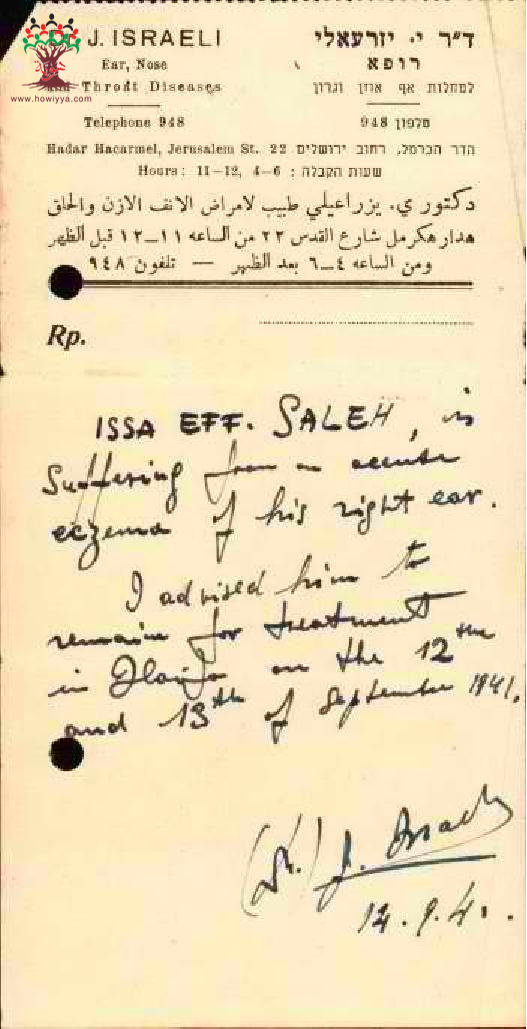 J. ISRAELI
ד"ר י. יזרעאלי
Ear, Nose
רופא
and Throat Diseases
למחלות אף אוזן וגרון
www.howiyya.com
Telephone 948
טלפון 948
Hadar Hacarmel, Jerusalem St. 22 הדר הכרמל, רחוב ירושלים
Hours: 11-12, 4-6 : שעות הקבלה
دكتور ي. يزراعيلي طبيب لامراض الانف الاذن والحلق
هدار هكرمل شارع القدس ٢٢ من الساعه ١١–١٢ قبل الظهر
ومن الساعه ٤–٦ بعد الظهر — تلفون ٩٤٨
Rp.
ISSA EFF. SALEH, is
suffering from an accute
eczema of his right ear.
I advised him to
remain for treatment
in Haifa on the 12th
and 13th of September 1941.
(Dr.) J. Israeli
12.9.41.